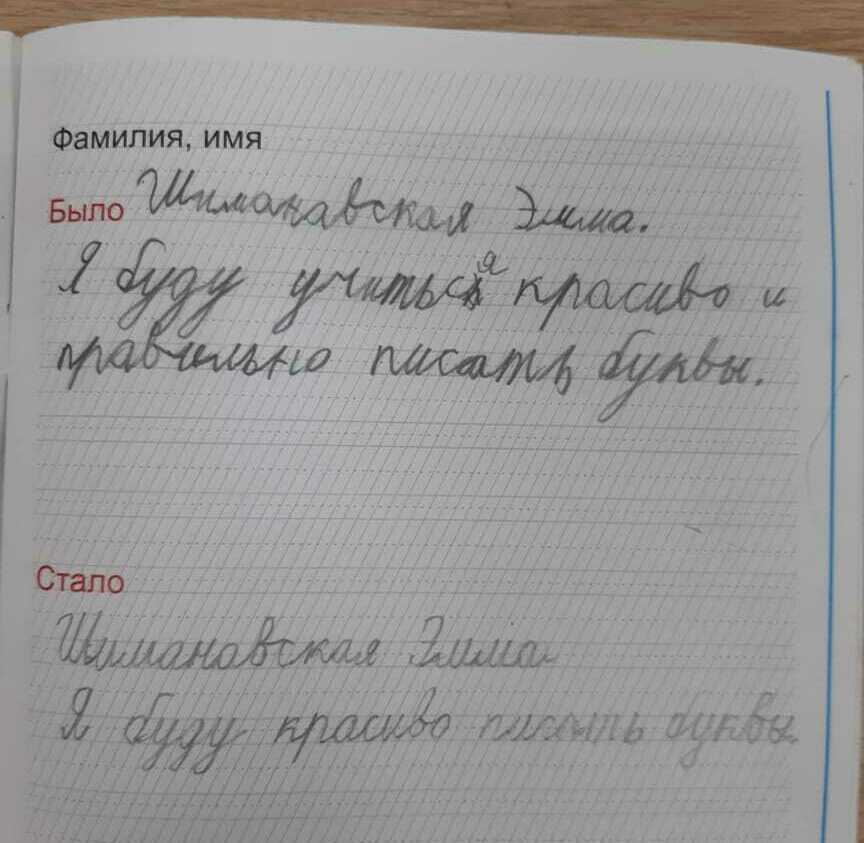 Фамилия, имя
Было Шиманавская Эмма.
Я буду учиться красиво и
правильно писать буквы.
Стало
Шимановская Эмма
Я буду красиво писать буквы.